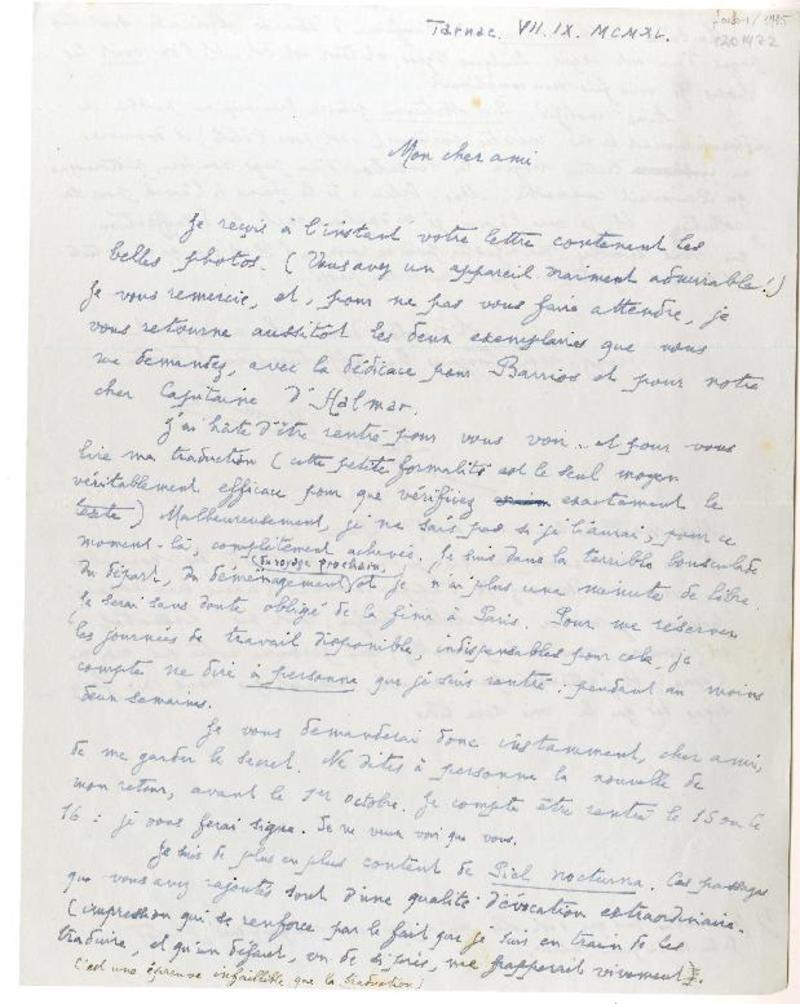 Tarnac. VII. IX. MCMXL.
1201472
Mon cher ami
Je reçois à l'instant votre lettre contenant les
belles photos. (Vous avez un appareil vraiment admirable!)
Je vous remercie, et, pour ne pas vous faire attendre, je
vous retourne aussitôt les deux exemplaires que vous
me demandez, avec la dédicace pour Barrios et pour notre
cher Capitaine D'Halmar.
J'ai hâte d'être rentré pour vous voir.. et pour vous
lire ma traduction (cette petite formalité est le seul moyen
véritablement efficace pour que vérifiiez exactement le
texte) Malheureusement, je ne sais pas si je l'aurai, pour ce
moment-là, complètement achevée. Je suis dans la terrible bousculade
(du voyage prochain,
du départ, du déménagement) et je n'ai plus une minute de libre.
Je serai sans doute obligé de la finir à Paris. Pour me réserver
les journées de travail disponible, indispensables pour cela, je
compte ne dire à personne que je suis rentré : pendant au moins
deux semaines.
Je vous demanderai donc instamment, cher ami,
de me garder le secret. Ne dites à personne la nouvelle de
mon retour, avant le 1er octobre. Je compte être rentré le 15 ou le
16 : je vous ferai signe. Je ne veux voir que vous.
Je suis de plus en plus content de Piel nocturna. Ces passages
que vous avez rajoutés sont d'une qualité d'évocation extraordinaire.
(impression qui se renforce par le fait que je suis en train de les
traduire, et qu'un défaut, me frapperait vivement).
C'est une épreuve infaillible que la traduction)